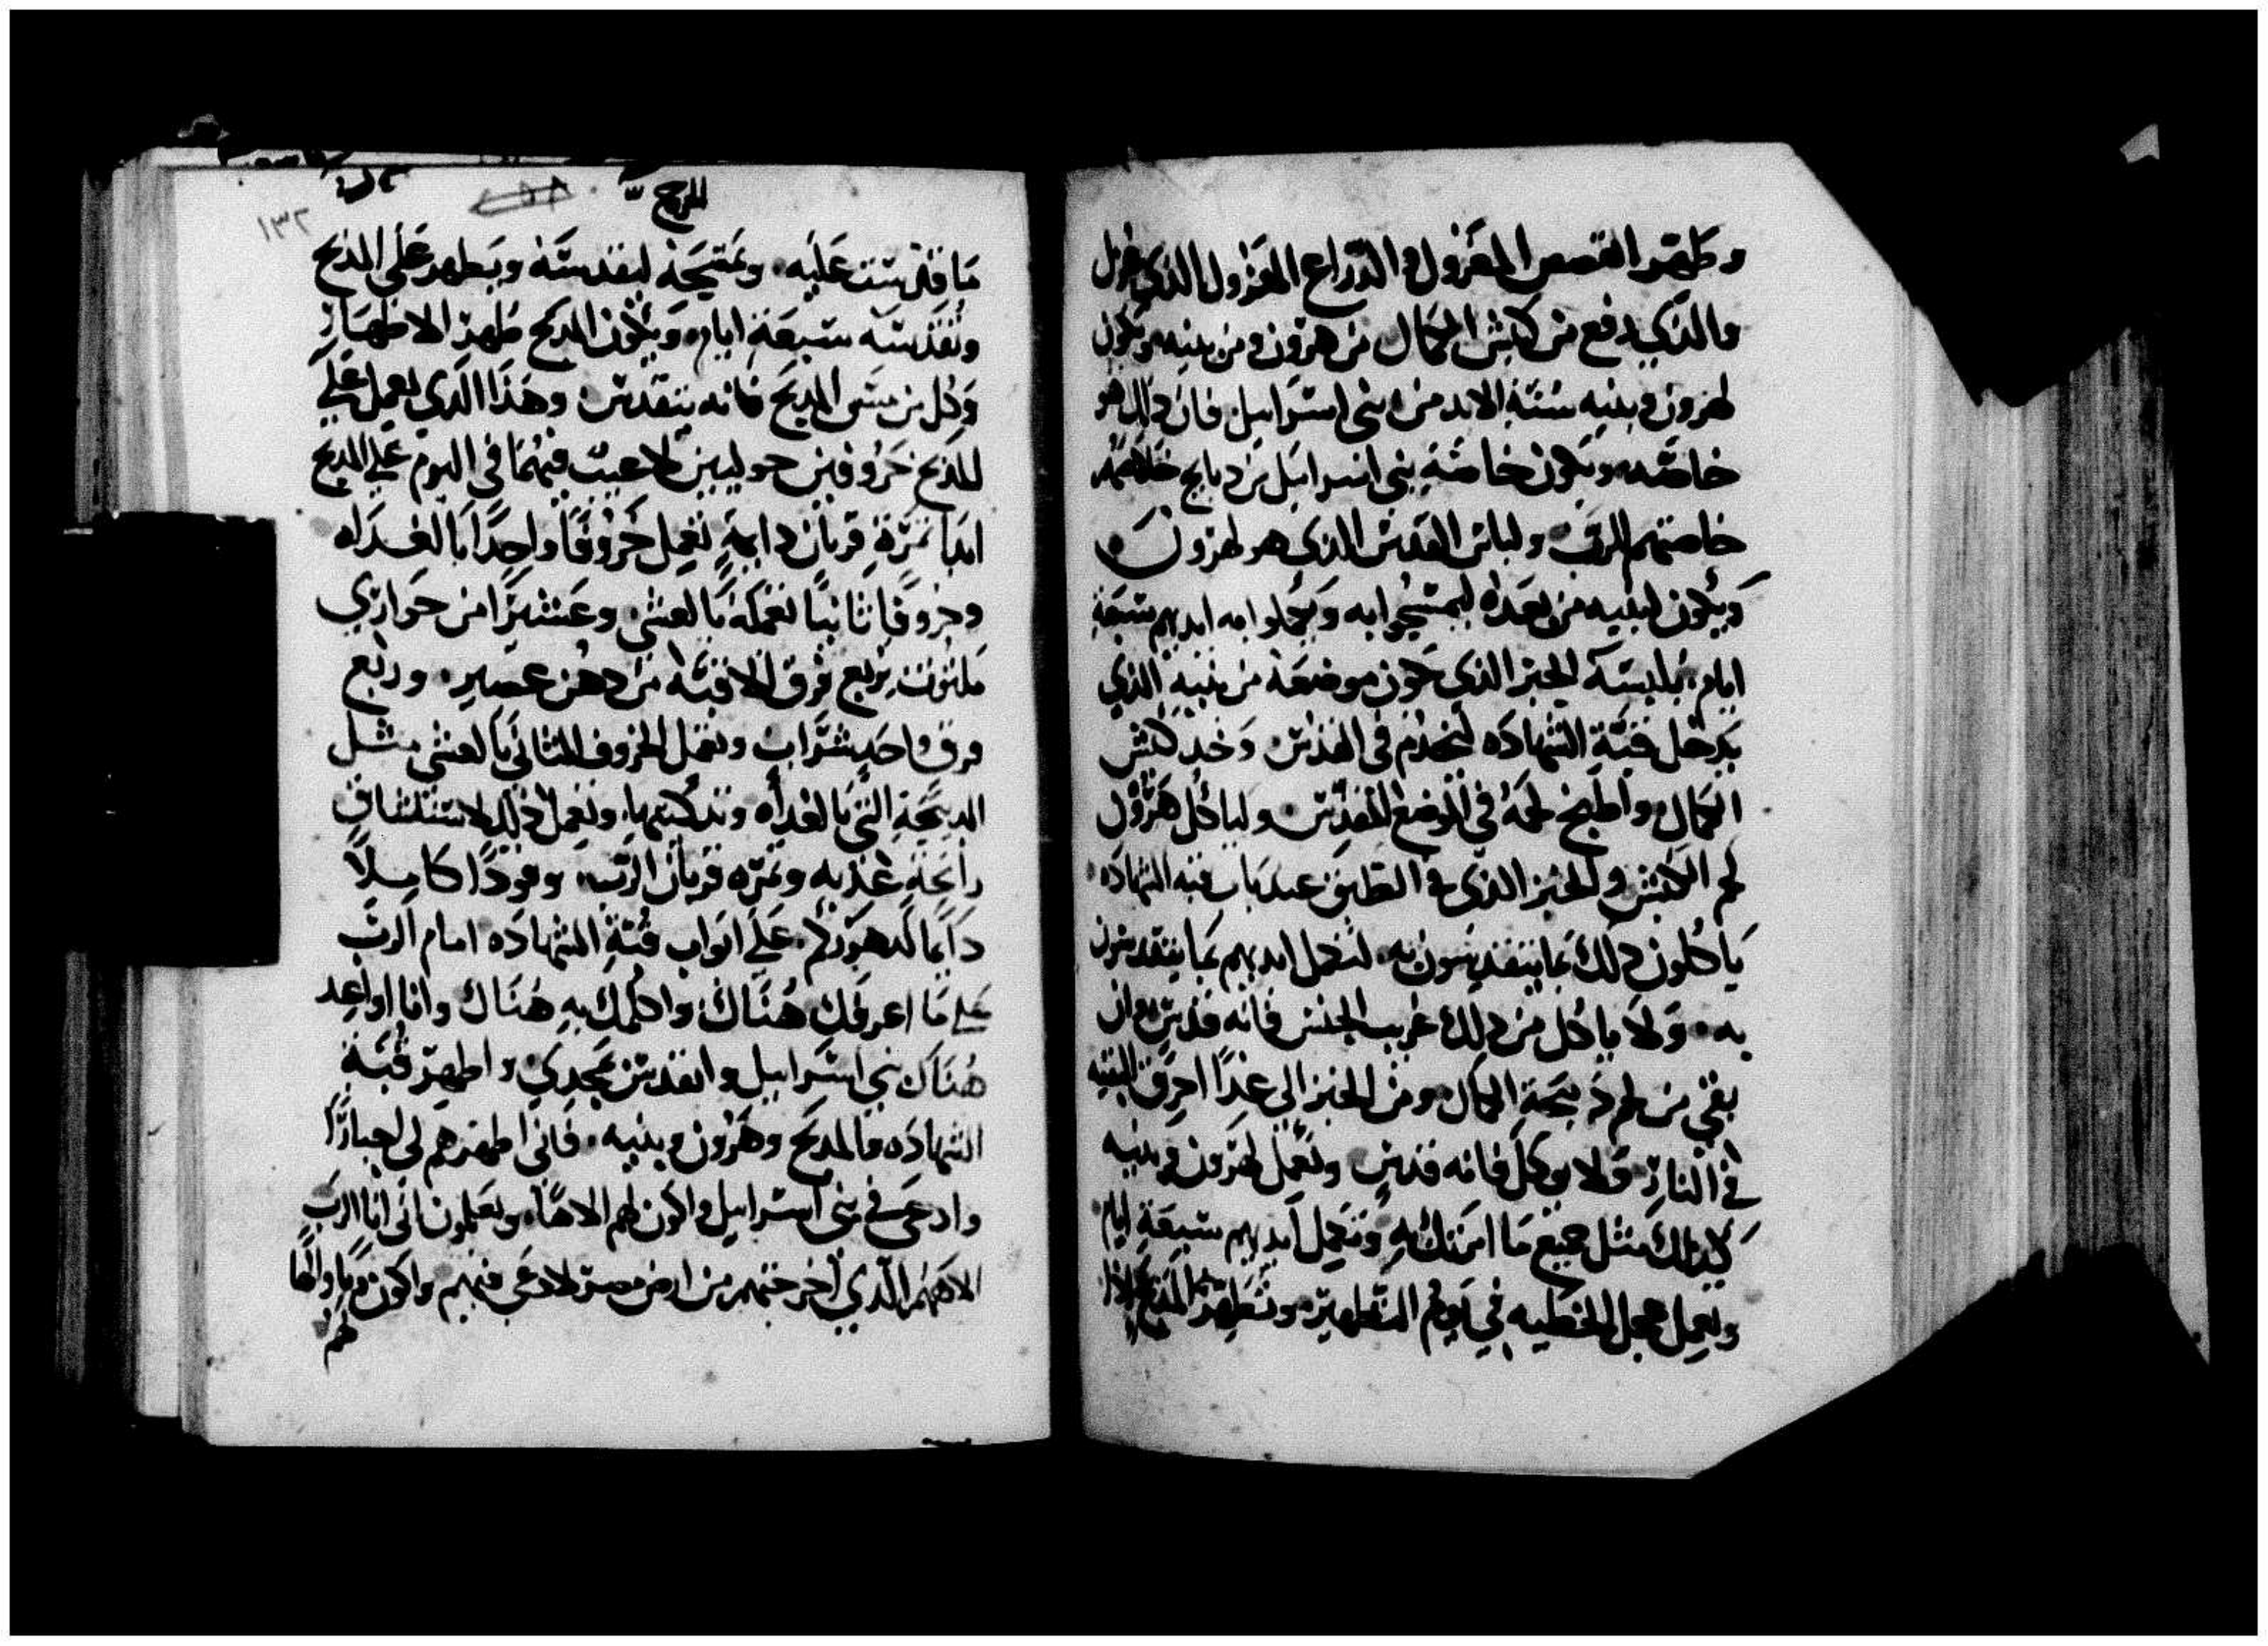 وطهر القصص المعزول والدراع المعزول الذي عزل
والذي رفع من كبش الكمال من هرون ومن بنيه ويكون
لهرون وبنيه سنة الابد من بني اسراييل فان ذلك هو
خاصه ويكون خاصة بني اسراييل من دبايح خلاصهم
خاصتهم للرب ولباس القدس الذي هو لهرون
ويكون لبنيه من بعده ليمسحوا به ويكملوا به ايديهم سبعة
ايام يلبسه الحبر الذي يكون موضعه من بنيه الذي
يدخل قبة الشهاده ليخدم في القدس وخد كبش
الكمال واطبخ لحمه في الموضع المقدس ولياكل هرون
لحم الكبش والخبز الذي في الطبق عند باب قبة الشهاده
ياكلون ذلك بما يتقدسون به لتكمل ايديهم بما يتقدسون
به ولا ياكل من ذلك غريب الجنس فانه قدس وان
بقي من لحم ذبيحة الكمال ومن الخبز الي غدا احرق البقيه
في النار ولا يوكل فانه قدس وتعمل لهرون وبنيه
كذلك مثل جميع ما امرتك به وتكمل ايديهم سبعة ايام
وتعمل عجل الخطيه في يوم التطهير وتطهر المدبح اذا
المدبح
١٣٢
ما قدست عليه وتمسحه لتقدسه وتطهر علي المدبح
وتقدسه سبعة ايام ويكون المدبح طهر الاطهار
وكل من مس المدبح فانه يتقدس وهذا الذي تعمل علي
المدبح خروفين حوليين لا عيب فيهما في اليوم علي المدبح
ابدا ثمرة قربان دايمة تعمل خروفا واحدا بالغداه
وخروفا ثانيا تعمله بالعشي وعشيرا من حواري
ملتوت بربع فرق الاقبه من دهن عصير وربع
فرق واحد شراب وتعمل الخروف الثاني بالعشي مثل
الدبيحة التي بالغداه وتدكيتها وتعمل ذلك لاستنشاق
رايحة عذبه وثمره قربان للرب وقودا كاملا
دايما لدهوركم علي ابواب قبة الشهاده امام الرب
علي ما اعرفك هناك واكلمك به هناك وانا اواعد
هناك بني اسراييل واتقدس بمجدي واطهر قبة
الشهاده والمدبح وهرون وبنيه فاني اطهرهم لي احبارا
وادعي في بني اسراييل واكون لهم الاها ويعلمون اني انا الرب
الاههم الذي اخرجتهم من ارض مصر لادعي فيهم واكون
لهم